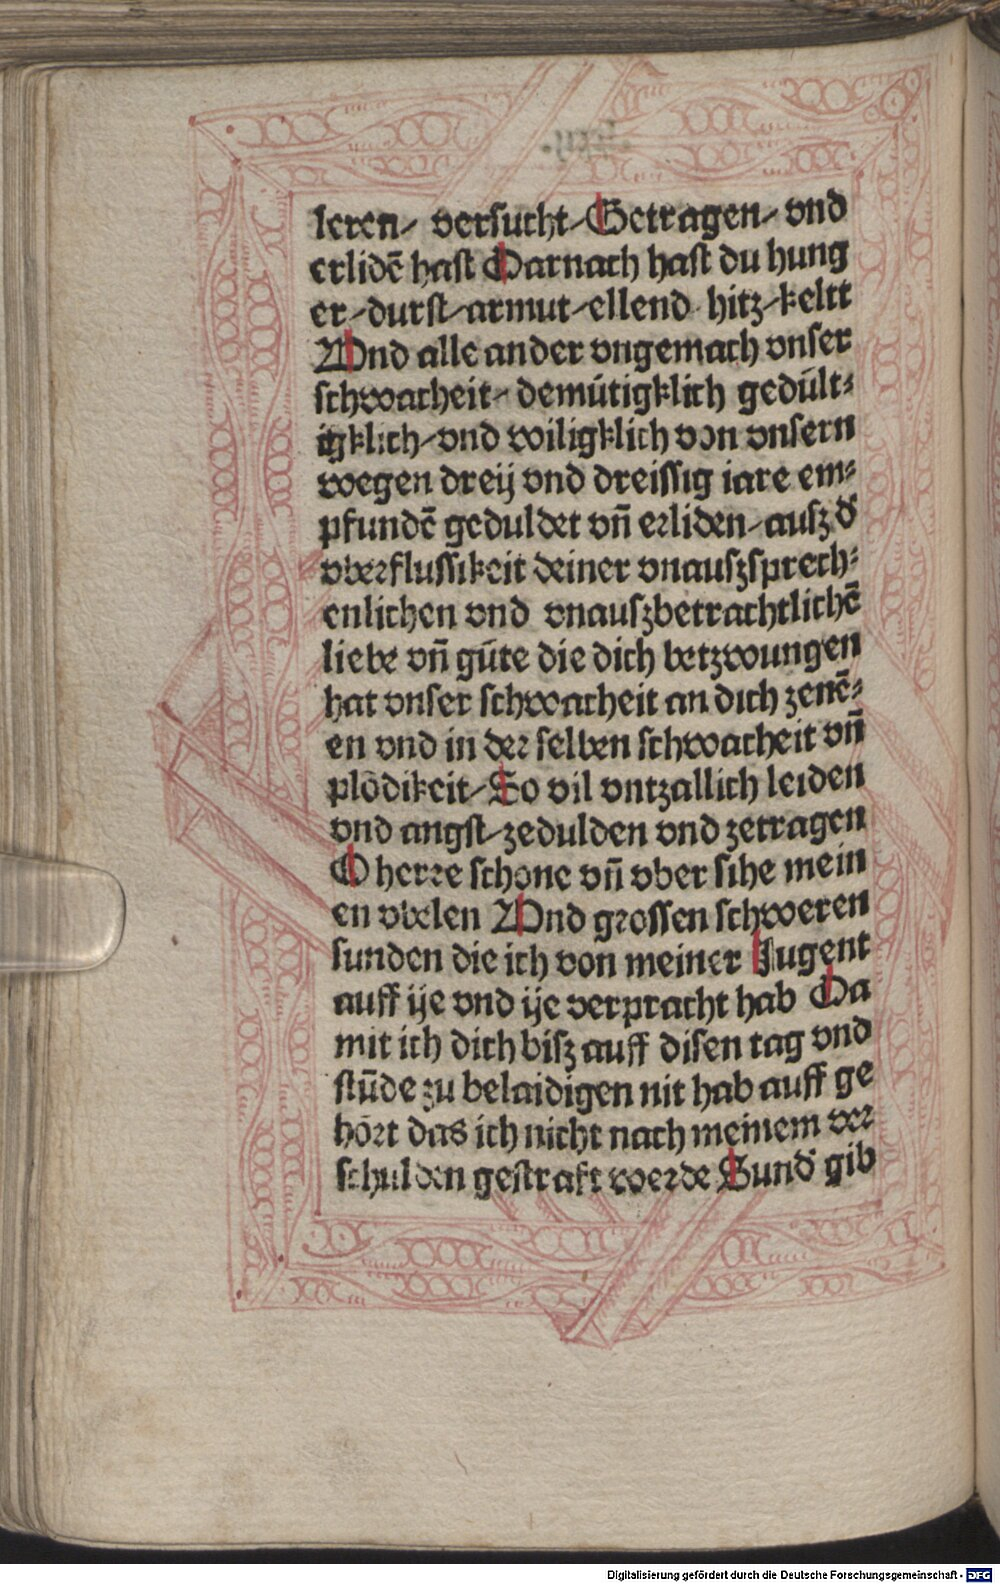 leren/ versucht/ Getragen/ vnd
erlidē hast Darnach hast du hung
er/ durst/ armut/ ellend hitz/ keltt
Vnd alle ander vngemach vnser
schwacheit/ demütigklich gedült⸗
igklich/ vnd williglich von vnsern
wegen dreij vnd dreissig iare em⸗
pfundē geduldet vñ erliden/ ausz d̕
vberflussikeit deiner vnauszsprech⸗
enlichen vnd vnauszbetrachtlichē
liebe vñ gūte die dich betzwungen
hat vnser schwacheit an dich zenē⸗
en vnd in der selben schwacheit vñ
plödikeit/ So vil vntzallich leiden
vnd angst/ zedulden vnd zetragen
O herre schone vñ vber sihe mein
en vbelen Vnd grossen schweren
sunden die ich von meiner Jugent
auff ije vnd ije verpracht hab Da
mit ich dich bisz auff disen tag vnd
stūde zu belaidigen nit hab auff ge
hört das ich nicht nach meinem ver
schulden gestraft werde Sund̕ gib
Digitalisierung gefördert durch die Deutsche Forschungsgemeinschaft - DFG